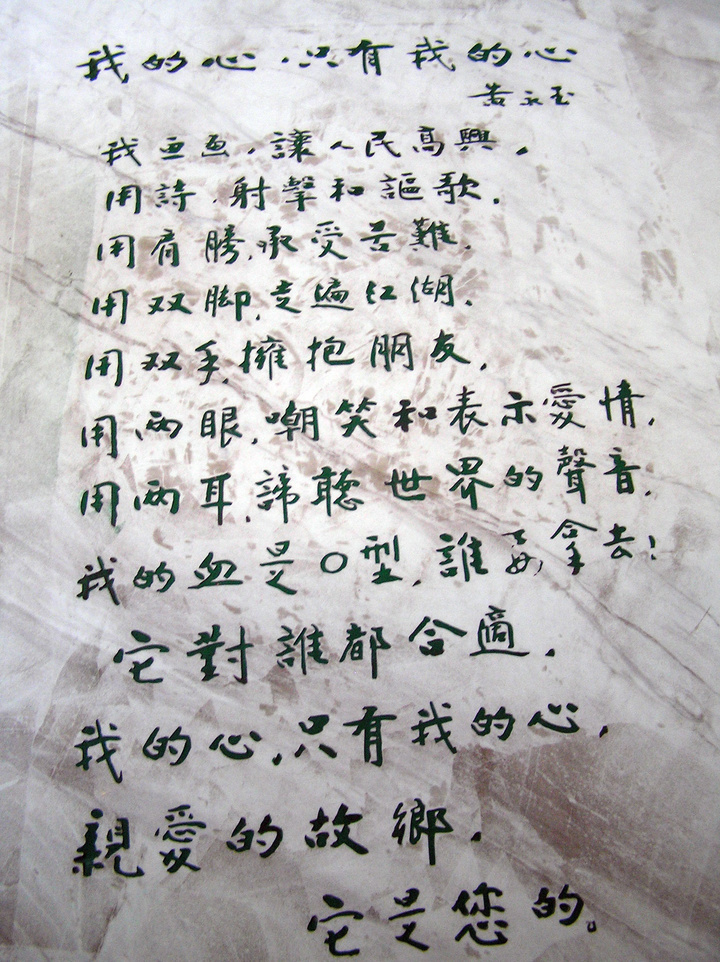 我的心，只有我的心
黃永玉
我画画，讓人民高興，
用詩，射擊和謳歌。
用肩膀，承受苦難，
用双脚，走遍江湖，
用双手，擁抱朋友，
用两眼，嘲笑和表示愛情，
用两耳，諦聽世界的聲音，
我的血是O型，誰要拿去！
它對誰都合適。
我的心，只有我的心，
親愛的故鄉，
它是您的。